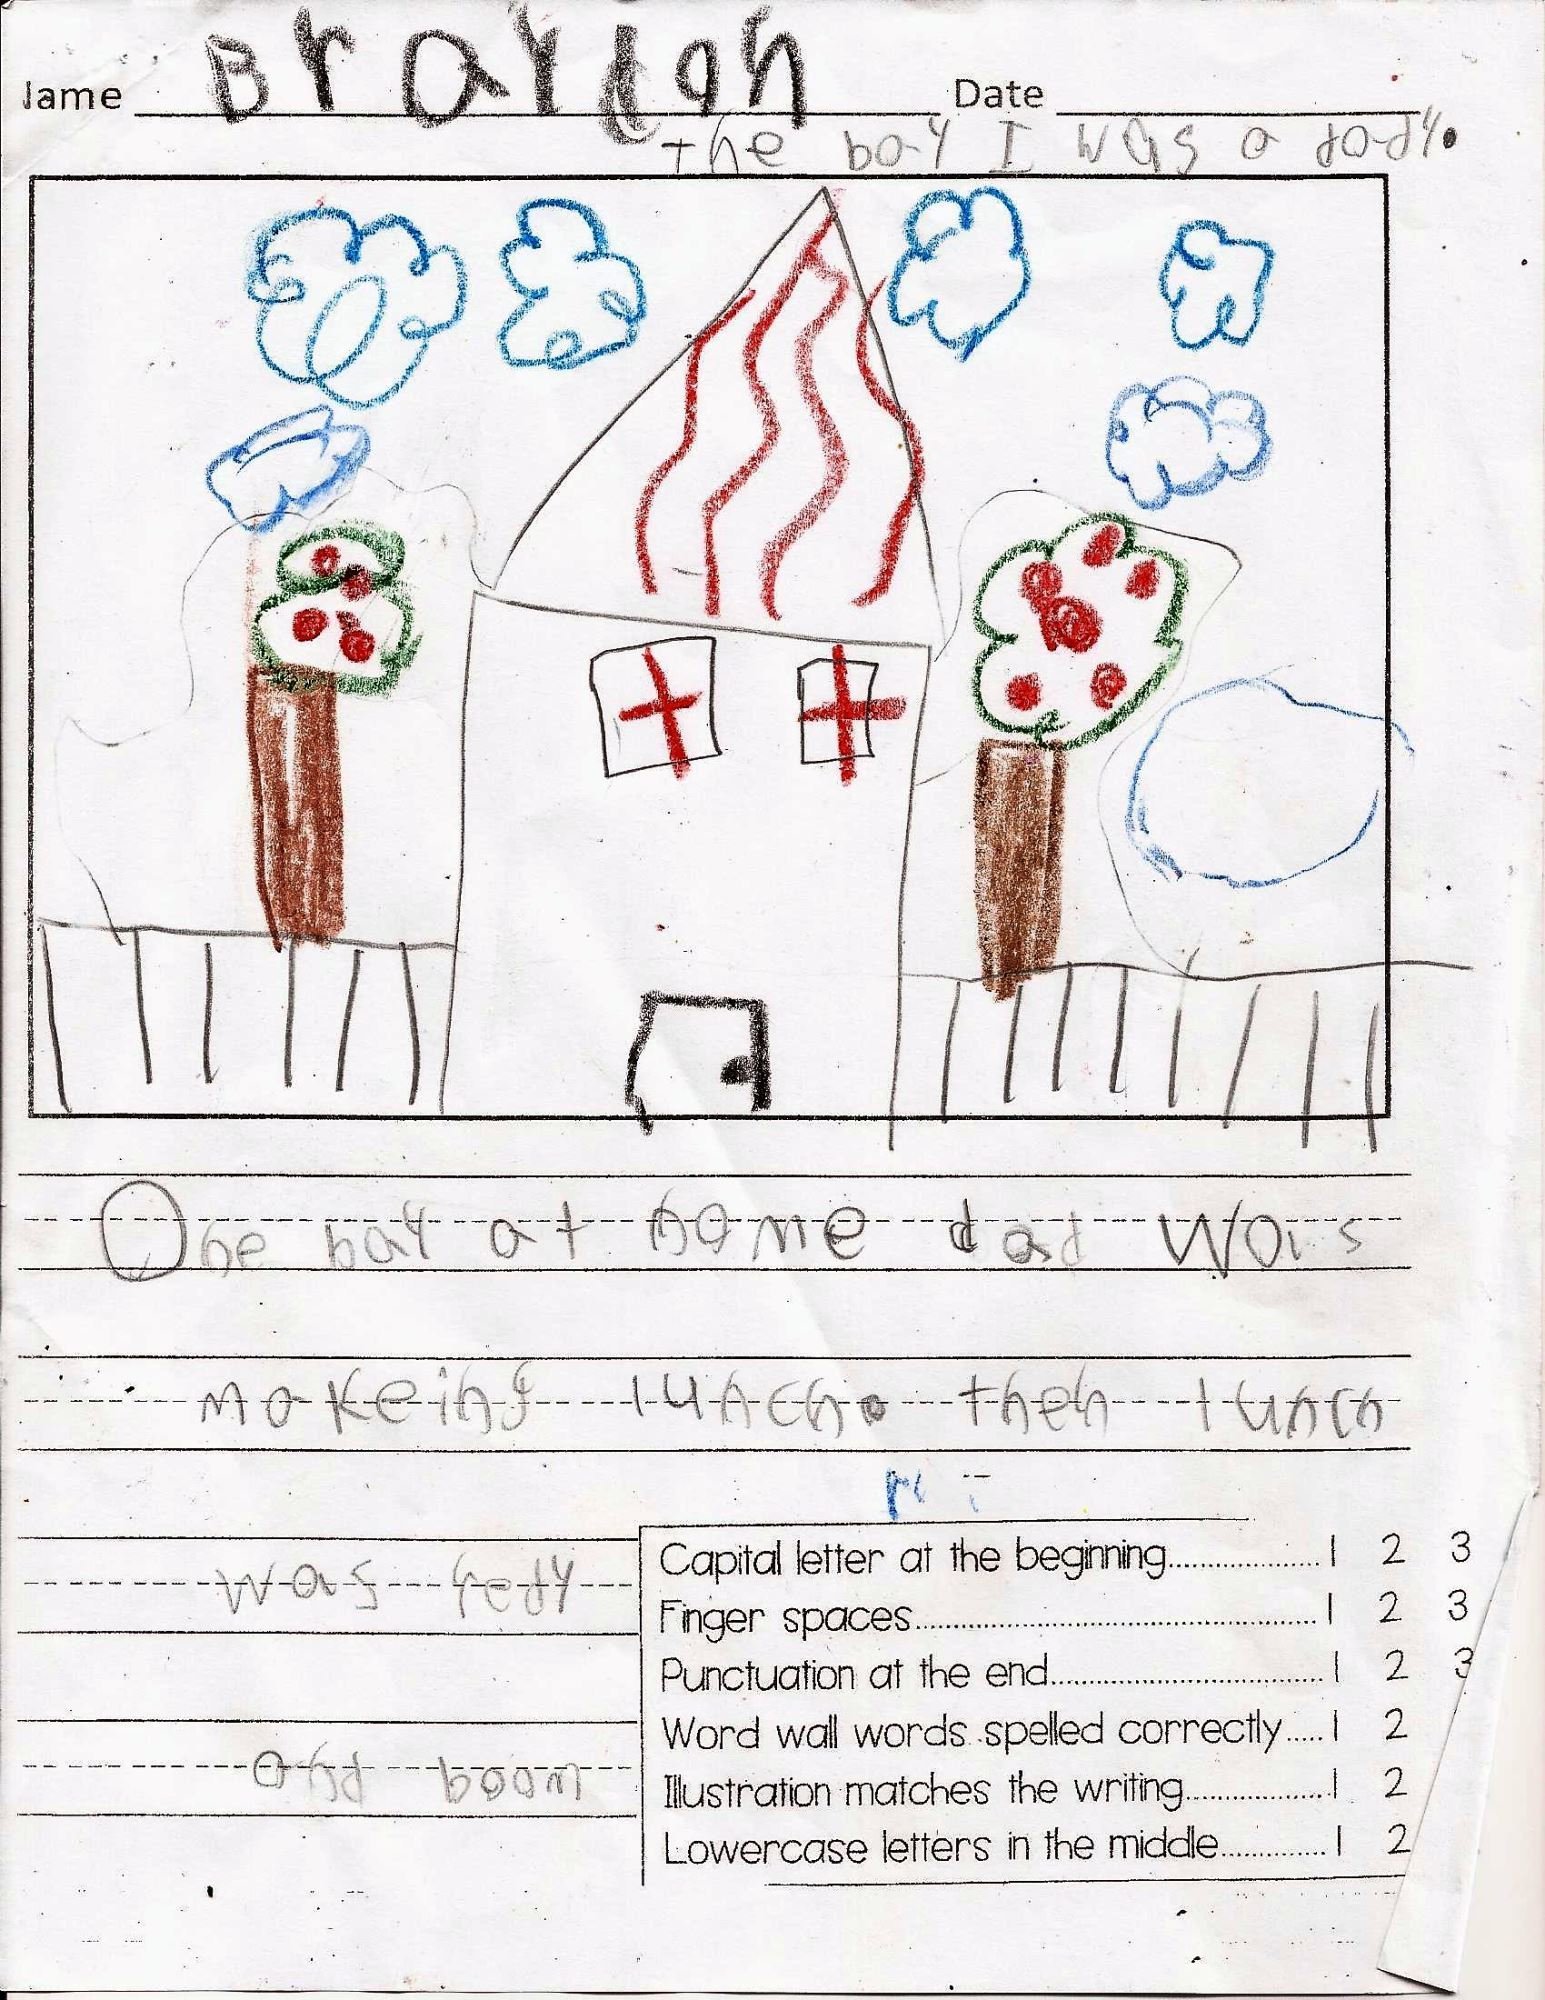 Name Braydon Date
the bay I was a dady.
One bay at home dad was
makeing lunch. then lunch
was redy
and boom
Capital letter at the beginning...................1 2 3
Finger spaces...................1 2 3
Punctuation at the end...................1 2 3
Word wall words spelled correctly.....1 2
Illustration matches the writing...................1 2
Lowercase letters in the middle..............1 2